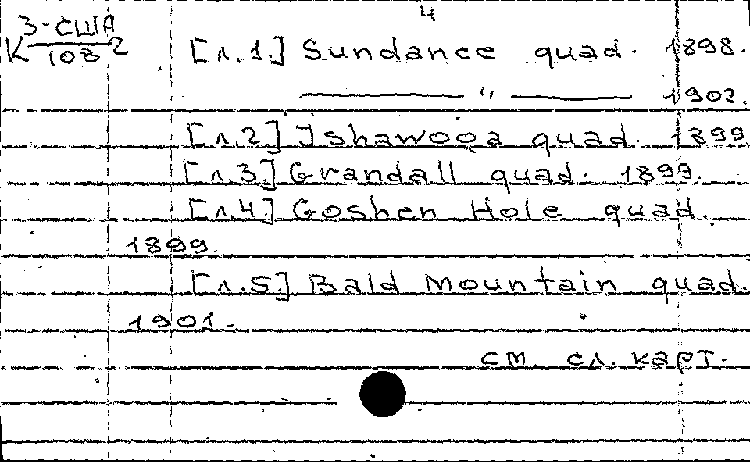 4
К 3-США/108 2
[л.1.] Sundance quad. 1898.
———— " ———— 1902.
[л.2] Ishawooa quad. 1899
[л.3.] Grandall quad. 1899.
[л.4] Goshen Hole quad.
1899.
[л.5] Bald Mountain quad.
1901.
см. сл. карт.